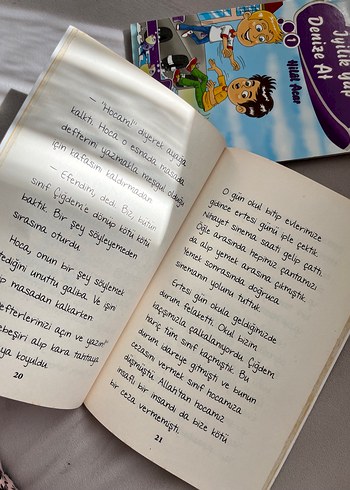 İyilik Yap
Denize At
1
— "Hocam!" diyerek ayağa
kalktı. Hoca o esnada masada
defterini yazmakla meşgul olduğu
için kafasını kaldırmadan
— Efendim, dedi. Biz bütün
sınıf Çiğdem'e dönüp kötü kötü
baktık. Bir şey söyleyemeden
sırasına oturdu.
Hoca, onun bir şey söylemek
tediğini unuttu galiba. Ve işini
ıp masadan kalkarken
efterlerimizi açın ve yazın!"
ebeşiri alıp kara tahtaya
ya koyuldu.
20
O gün okul bitip evlerimize
gidince ertesi günü iple çektik.
Nihayet sinema saati gelip çattı.
Öğle arasında hepimiz çantamızı
da alıp yemek arasına çıkmıştık.
Yemek sonrasında doğruca
sinemanın yolunu tuttuk.
Ertesi gün okula geldiğimizde
durum felaketti. Okul bizim
kaçışımızla çalkalanıyordu. Çiğdem
hariç tüm sınıf kaçmıştık. Bu
durum idareye gitmişti ve bunun
cezasını vermek sınıf hocamıza
düşmüştü. Allah'tan hocamız
insaflı bir insandı da bize kötü
bir ceza vermemişti.
21